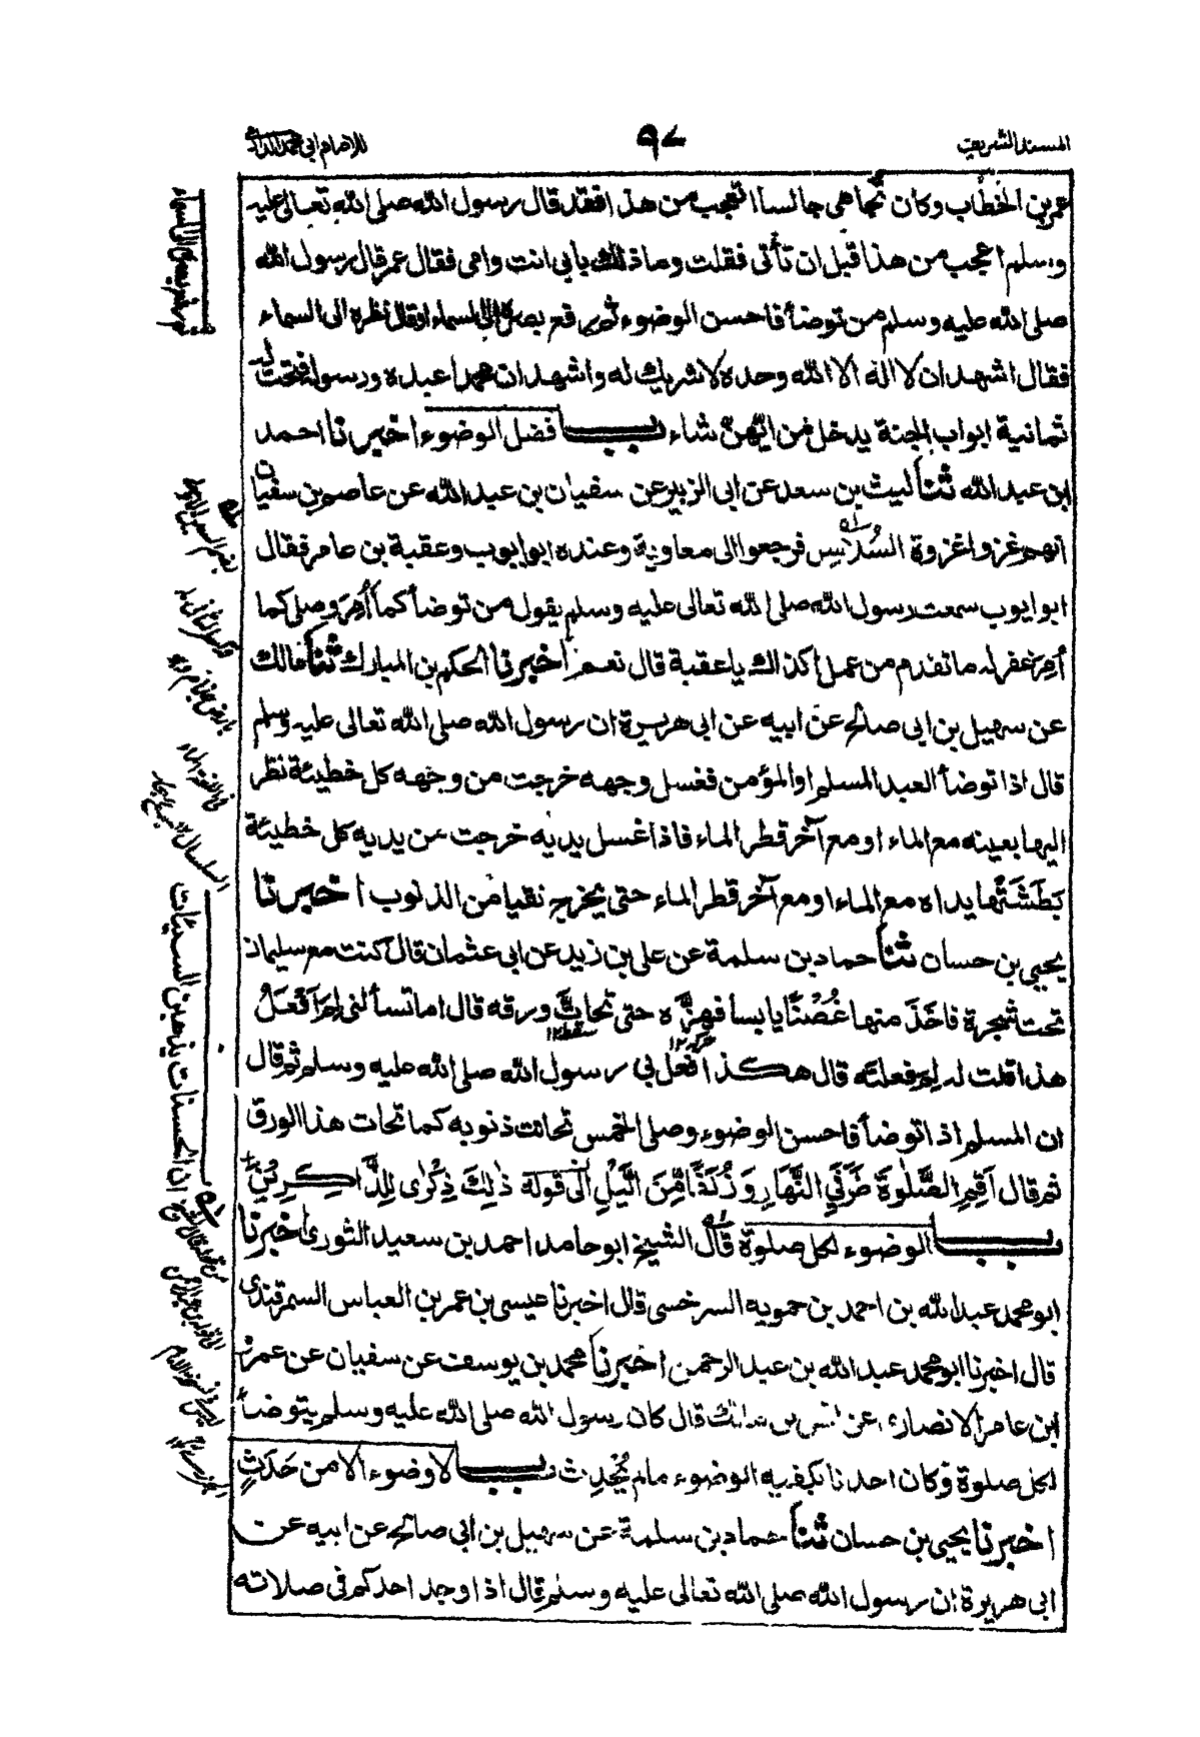 المسند الشريف
٩٧
للامام ابي محمد الدارمي
عمر بن الخطاب وكان تجاهي جالسا اتعجب من هذا فقد قال رسول الله صلى الله تعالى عليه
وسلم اعجب من هذا قبل ان تأتي فقلت وما ذلك بابي انت وامي فقال عمر قال رسول الله
صلى الله عليه وسلم من توضأ فاحسن الوضوء ثم رفع بصره الى السماء او قال نظره الى السماء
فقال اشهد ان لا اله الا الله وحده لا شريك له واشهد ان محمدا عبده ورسوله فتحت له
ثمانية ابواب الجنة يدخل من ايهن شاء باب فضل الوضوء اخبرنا احمد
بن عبد الله ثنا ليث بن سعد عن ابي الزبير عن سفيان بن عبد الله عن عاصم بن سفيان
انهم غزوا غزوة السُلاسِس فرجعوا الى معاوية وعنده ابو ايوب وعقبة بن عامر فقال
ابو ايوب سمعت رسول الله صلى الله تعالى عليه وسلم يقول من توضأ كما أُمِرَ وصلى كما
أُمِرَ غفر له ما تقدم من عمل اكذاك يا عقبة قال نعم اخبرنا الحكم بن المبارك ثنا مالك
عن سهيل بن ابي صالح عن ابيه عن ابي هريرة ان رسول الله صلى الله تعالى عليه وسلم
قال اذا توضأ العبد المسلم او المؤمن فغسل وجهه خرجت من وجهه كل خطيئة نظر
اليها بعينه مع الماء او مع آخر قطر الماء فاذا غسل يديه خرجت من يديه كل خطيئة
بَطَشَتْها يداه مع الماء او مع آخر قطر الماء حتى يخرج نقيا من الذنوب اخبرنا
يحيى بن حسان ثنا حماد بن سلمة عن علي بن زيد عن ابي عثمان قال كنت مع سلمان
تحت شجرة فاخَذَ منها غُصْنًا يابسا فهزَّه حتى تحاتَّ ورقه قال اما تسألني لِمَ اَفْعَلُ
هذا قلت له لم فعلته قال هكذا فعل بي رسول الله صلى الله عليه وسلم ثم قال
ان المسلم اذا توضأ فاحسن الوضوء وصلى الخمس تحاتت ذنوبه كما تحات هذا الورق
ثم قال اَقِيمِ الصَّلٰوةَ طَرَفَيِ النَّهَارِ وَزُلَفًا مِّنَ الَّيْلِ الى قوله ذٰلِكَ ذِكْرٰى لِلذَّاكِرِيْنَ
باب الوضوء لكل صلوة قال الشيخ ابو حامد احمد بن سعيد الثوري اخبرنا
ابو محمد عبد الله بن احمد بن حمويه السرخسي قال اخبرنا عيسى بن عمر بن العباس السمرقندي
قال اخبرنا ابو محمد عبد الله بن عبد الرحمن اخبرنا محمد بن يوسف عن سفيان عن عمرو
ابن عامر الانصاري عن انس بن مالك قال كان رسول الله صلى الله عليه وسلم يتوضأ
لكل صلوة وكان احدنا يكفيه الوضوء ما لم يُحْدِث باب لا وضوء الا من حَدَثٍ
اخبرنا يحيى بن حسان ثنا حماد بن سلمة عن سهيل بن ابي صالح عن ابيه عن
ابي هريرة ان رسول الله صلى الله تعالى عليه وسلم قال اذا وجد احدكم في صلاته
ان الحسنات يذهبن السيئات